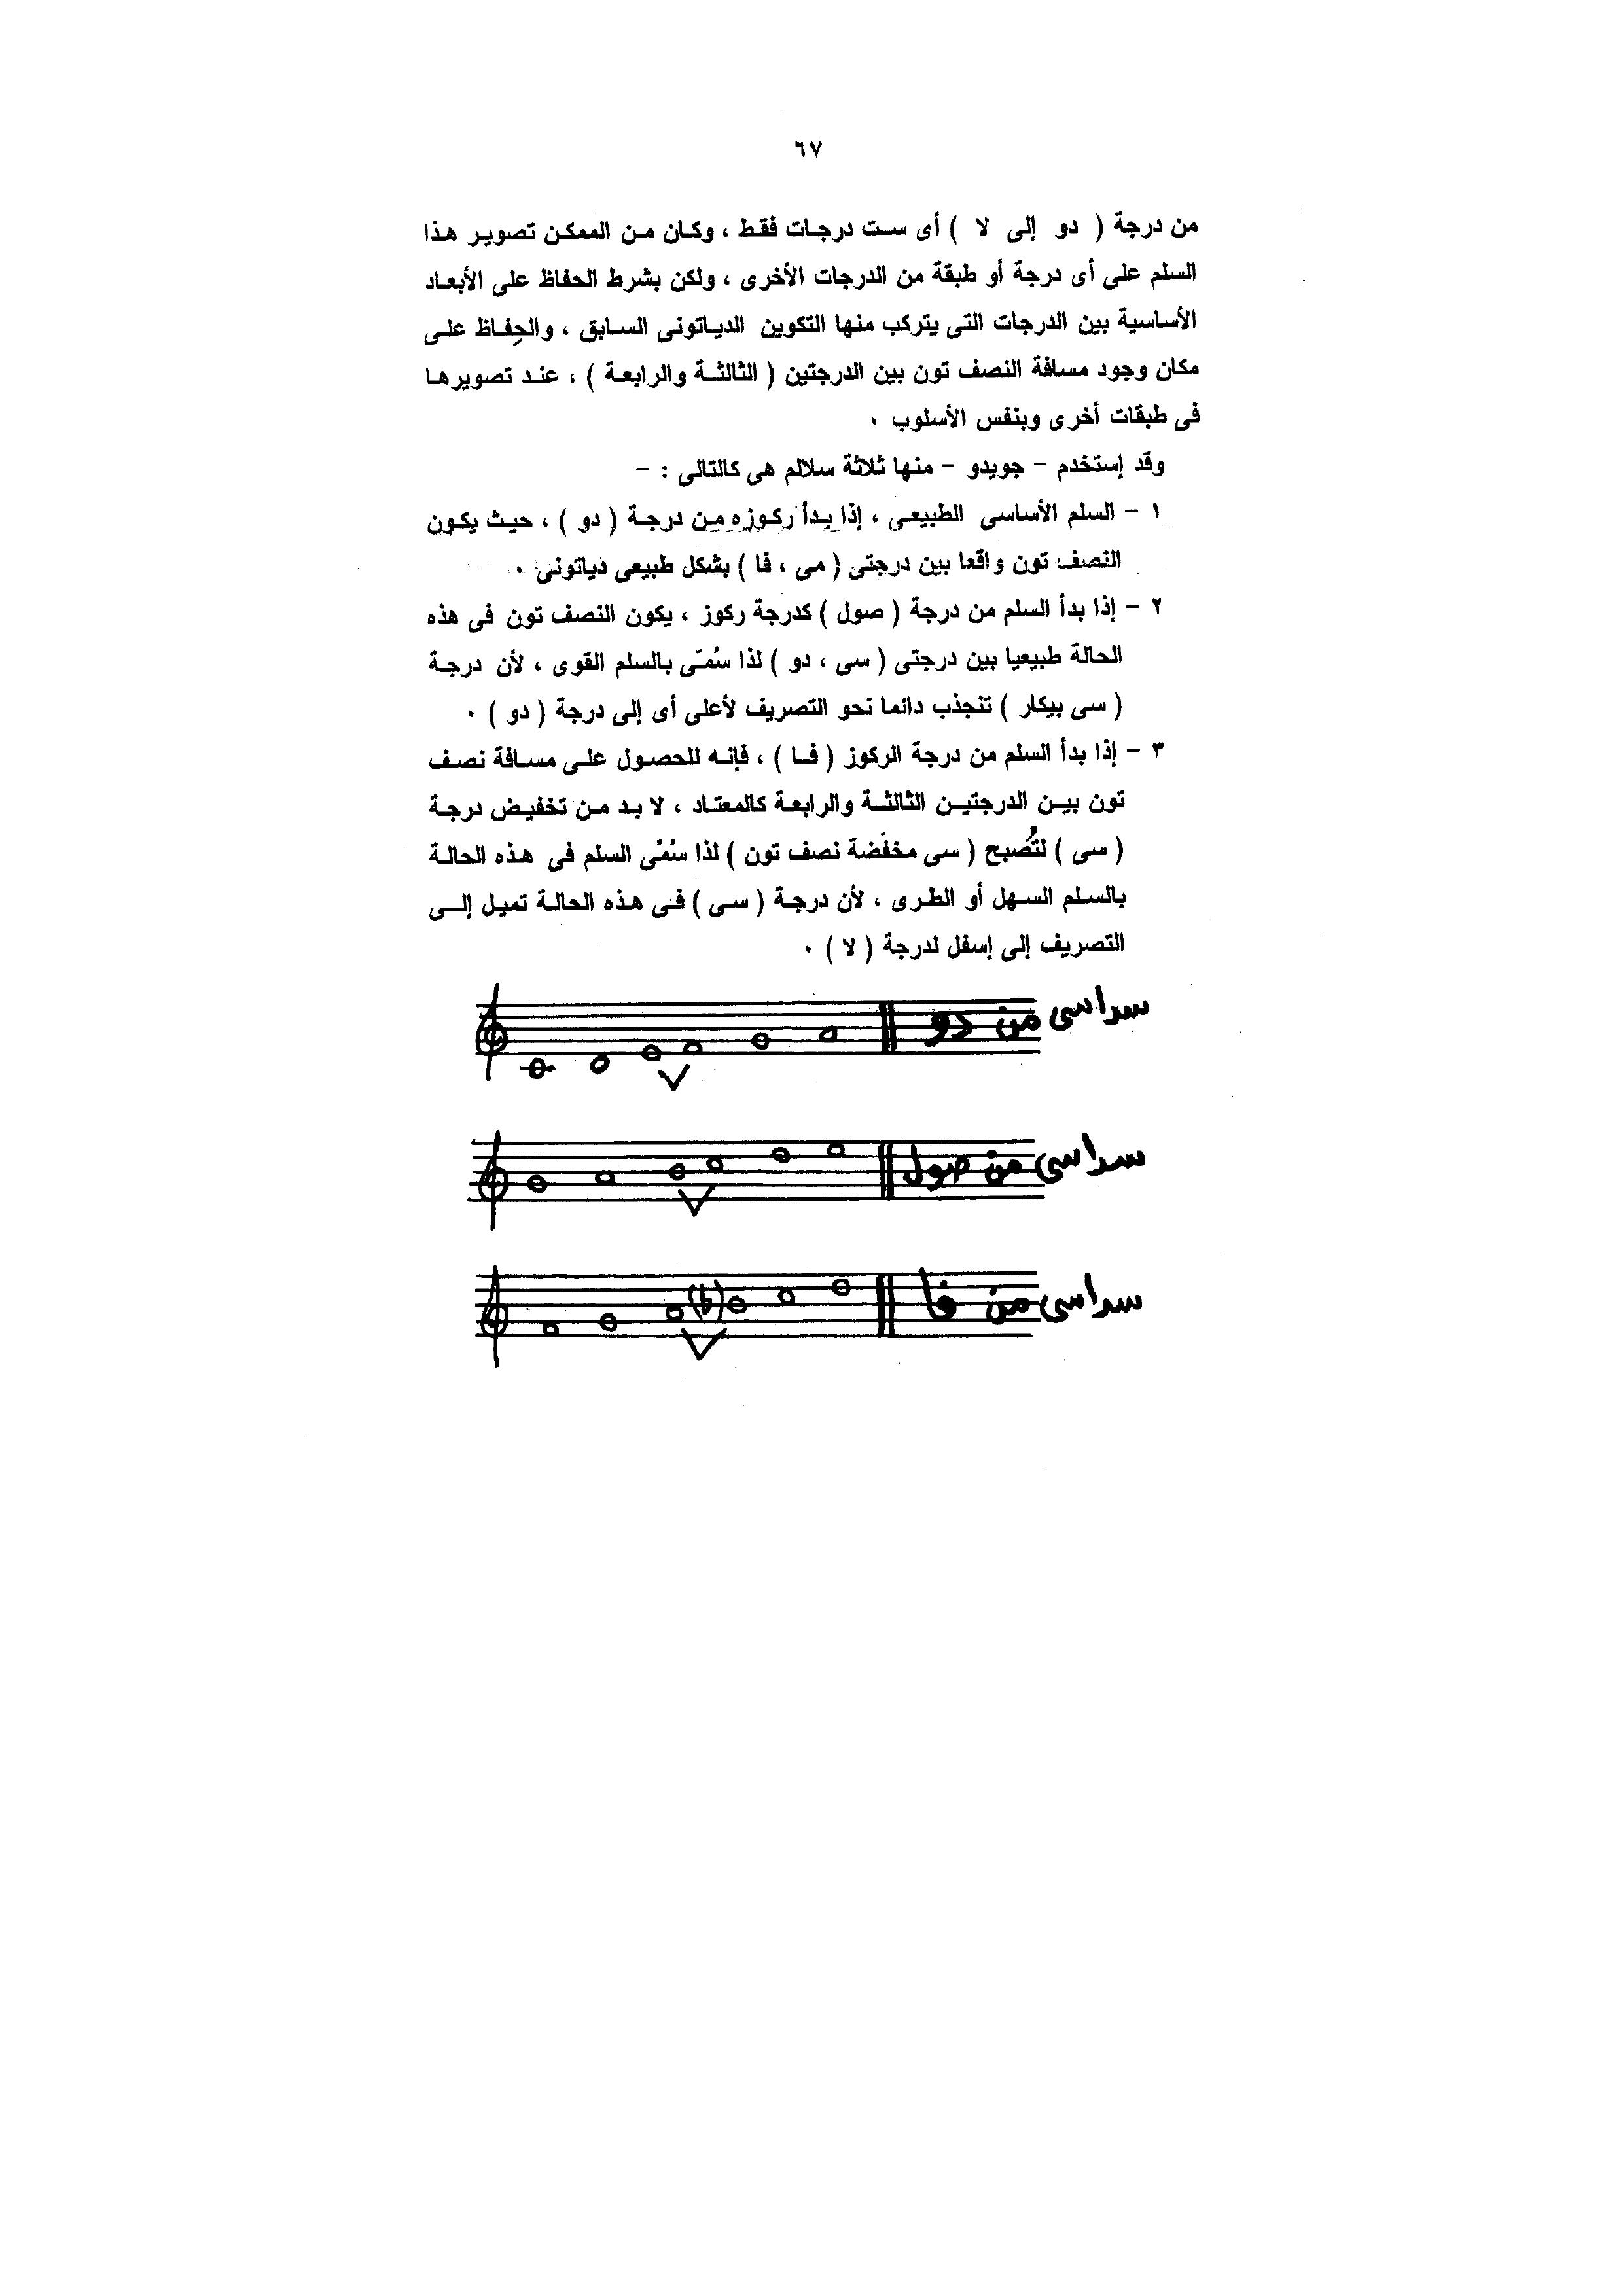 ٦٧
من درجة ( دو إلى لا ) أى ست درجات فقط ، وكان من الممكن تصوير هذا
السلم على أى درجة أو طبقة من الدرجات الأخرى ، ولكن بشرط الحفاظ على الأبعاد
الأساسية بين الدرجات التى يتركب منها التكوين الدياتونى السابق ، والحِفاظ على
مكان وجود مسافة النصف تون بين الدرجتين ( الثالثة والرابعة ) ، عند تصويرها
فى طبقات أخرى وبنفس الأسلوب ٠
وقد إستخدم – جويدو – منها ثلاثة سلالم هى كالتالى : –
١ – السلم الأساسى الطبيعى ، إذا بدأ ركوزه من درجة ( دو ) ، حيث يكون
النصف تون واقعا بين درجتى ( مى ، فا ) بشكل طبيعى دياتونى ٠
٢ – إذا بدأ السلم من درجة ( صول ) كدرجة ركوز ، يكون النصف تون فى هذه
الحالة طبيعيا بين درجتى ( سى ، دو ) لذا سُمّى بالسلم القوى ، لأن درجة
( سى بيكار ) تنجذب دائما نحو التصريف لأعلى أى إلى درجة ( دو ) ٠
٣ – إذا بدأ السلم من درجة الركوز ( فا ) ، فإنه للحصول على مسافة نصف
تون بين الدرجتين الثالثة والرابعة كالمعتاد ، لا بد من تخفيض درجة
( سى ) لتُصبح ( سى مخفَضة نصف تون ) لذا سُمّى السلم فى هذه الحالة
بالسلم السهل أو الطرى ، لأن درجة ( سى ) فى هذه الحالة تميل إلى
التصريف إلى إسفل لدرجة ( لا ) ٠
سداسى من دو
سداسى من صول
سداسى من فا